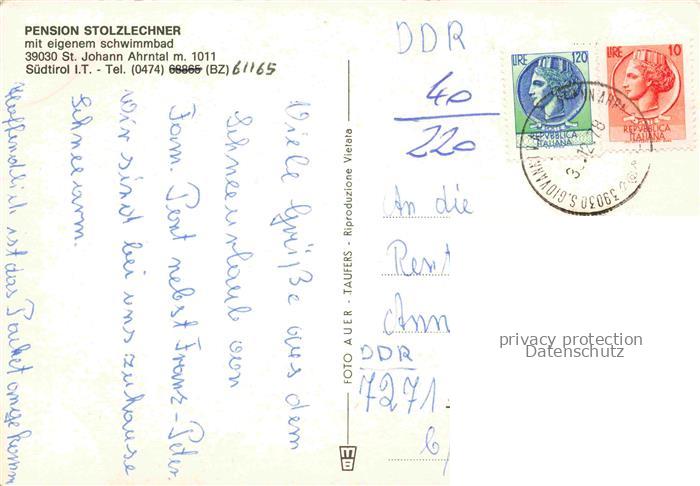 PENSION STOLZLECHNER
mit eigenem schwimmbad
39030 St. Johann Ahrntal m. 1011
Südtirol I.T. - Tel. (0474) 68865 (BZ) 61165
Viele Grüße aus dem
Schneeurlaub von
Fam. Pent nebst Franz-Peter.
Wir sind bei uns zuhause
Schneearm.
Hoffendlich ist das Packet angekomm
FOTO AUER - TAUFERS - Riproduzione Vietata
DDR
40
220
LIRE 120
REPVBBLICA
ITALIANA
LIRE 10
REPVBBLICA
ITALIANA
39030 S. GIOVANNI
An die
Rent
Ann
DDR
7271
privacy protection
Datenschutz